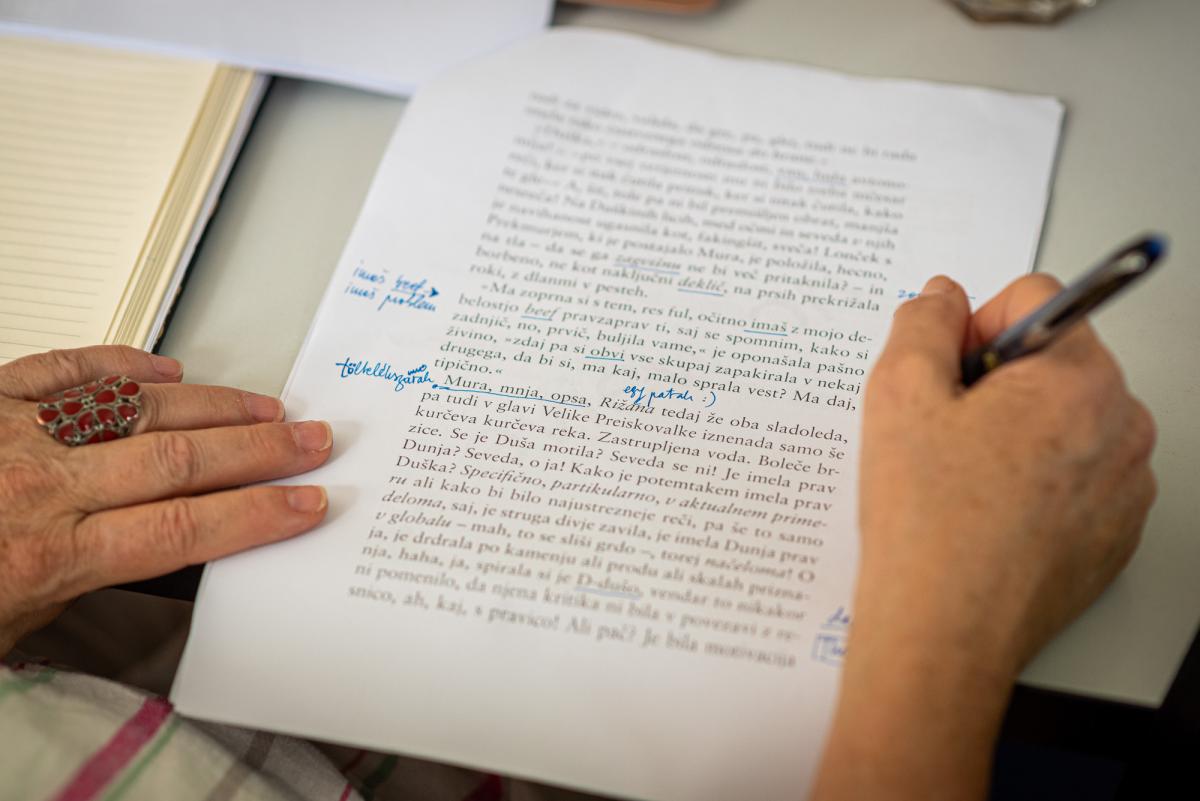 in se glo-... A, šit, tole pa ni bil premišljen obrat, manjša
nesreča! Na Duškinih licih, med očmi in seveda v njih
je navihanost ugasnila kot, fakingšit, sveča! Lonček s
Prekmurjem, ki je postajalo Mura, je položila, hecno,
na tla – da se ga zagovizni ne bi več pritaknila? – in
borbeno, ne kot naključni deklič, na prsih prekrižala
roki, z dlanmi v pesteh.
imaš beef
imaš problem
»Ma zoprna si s tem, res ful, očitno imaš z mojo de-
belostjo beef pravzaprav ti, saj se spomnim, kako si
zadnjič, no, prvič, buljila vame,« je oponašala pašno
živino, »zdaj pa si obvi vse skupaj zapakirala v nekaj
drugega, da bi si, ma kaj, malo sprala vest? Ma daj,
tipično.«
egy patak :)
Mura, mnja, opsa, Rižana tedaj že oba sladoleda,
pa tudi v glavi Velike Preiskovalke iznenada samo še
kurčeva kurčeva reka. Zastrupljena voda. Boleče br-
zice. Se je Duša motila? Seveda se ni! Je imela prav
Dunja? Seveda, o ja! Kako je potemtakem imela prav
Duška? Specifično, partikularno, v aktualnem prime-
ru ali kako bi bilo najustrezneje reči, pa še to samo
deloma, saj, je struga divje zavila, je imela Dunja prav
v globalu – mah, to se sliši grdo –, torej načeloma! O
ja, je drdrala po kamenju ali produ ali skalah prizma-
nja, haha, ja, spirala si je D-dušo, vendar to nikakor
ni pomenilo, da njena kritika ni bila v povezavi z re-
snico, ah, kaj, s pravico! Ali pač? Je bila motivacija